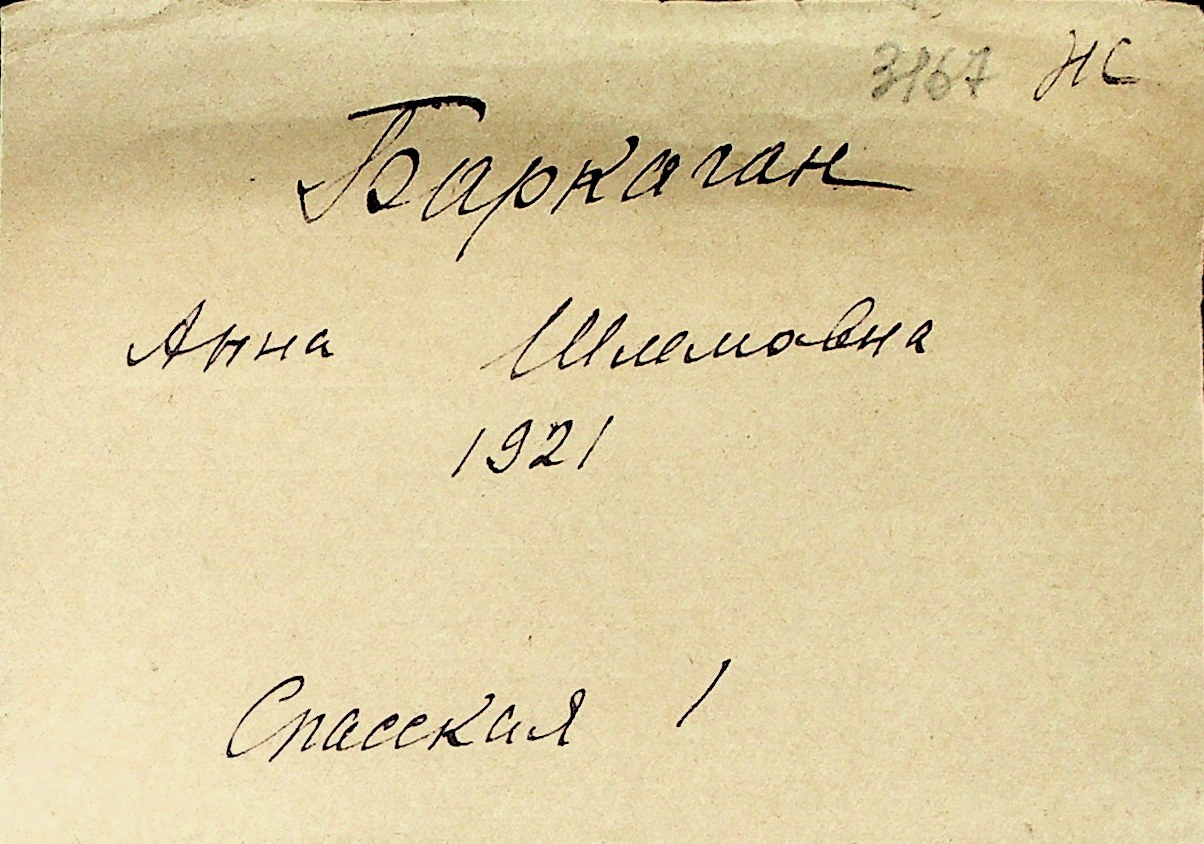 3167 НС
Баркаган
Анна Шлемовна
1921
Спасская 1